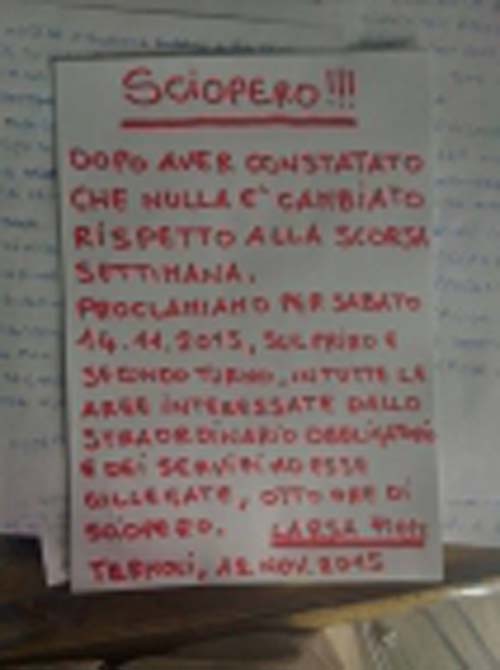 SCIOPERO!!!
DOPO AVER CONSTATATO
CHE NULLA E' CAMBIATO
RISPETTO ALLA SCORSA
SETTIMANA.
PROCLAMIAMO PER SABATO
14.11.2015, SUL PRIMO E
SECONDO TURNO, IN TUTTE LE
AREE INTERESSATE DALLO
STRAORDINARIO OBBLIGATORIO
E DEI SERVIZI AD ESSE
COLLEGATE, OTTO ORE DI
SCIOPERO.
TERMOLI, 12 NOV. 2015